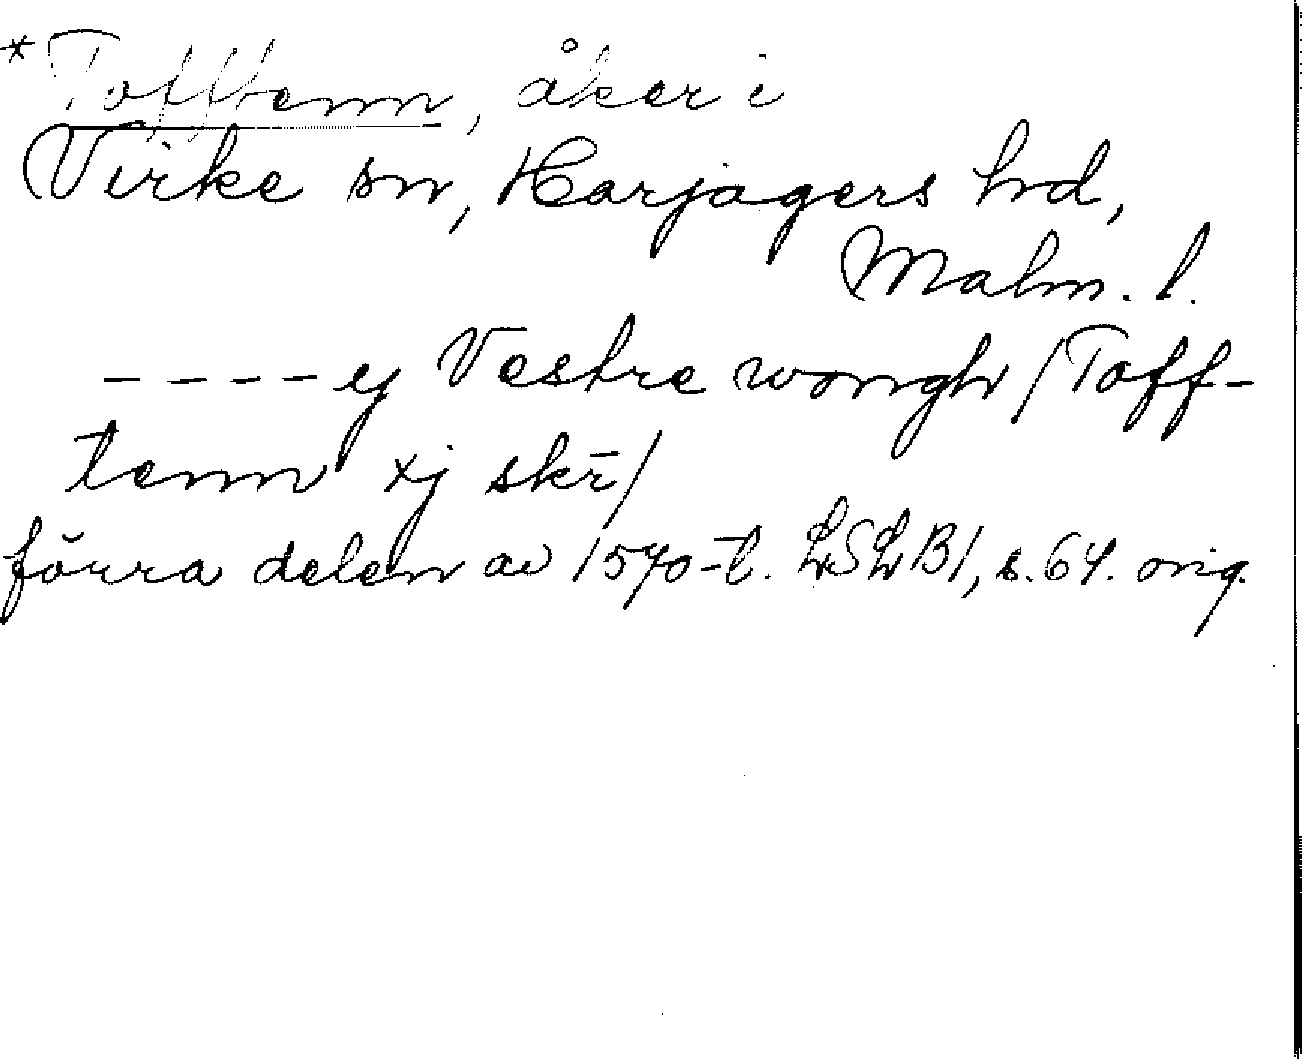 *Tofftenn, åker i
Virke sn, Harjagers hd,
Malm. l.
----ej Vestre wongh/Toff-
tenn xj skr̄/
förra delen av 1570-t. LSLB1, s. 64. orig.